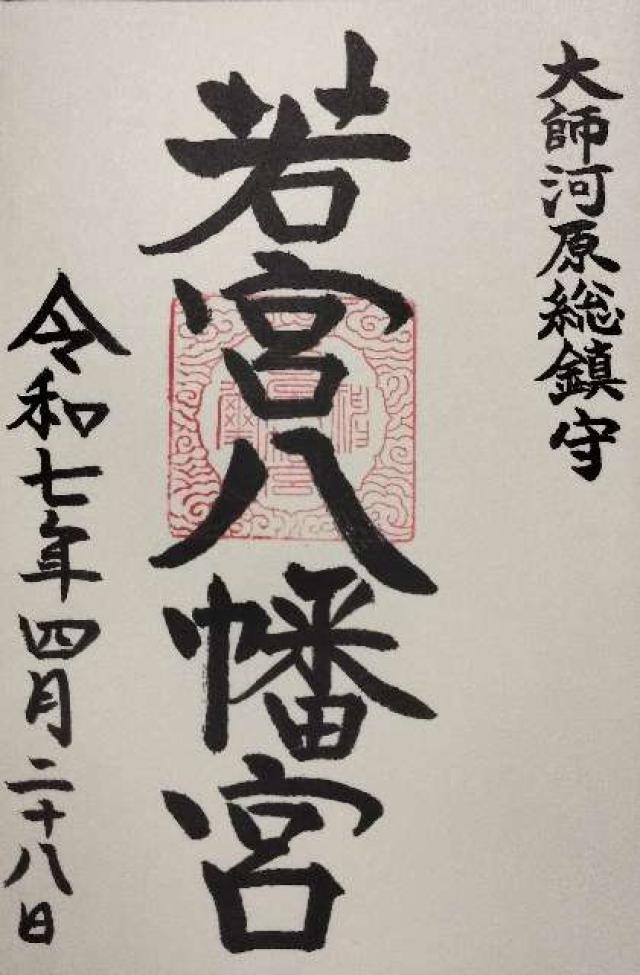 大師河原総鎮守
若宮八幡宮
令和七年四月二十八日